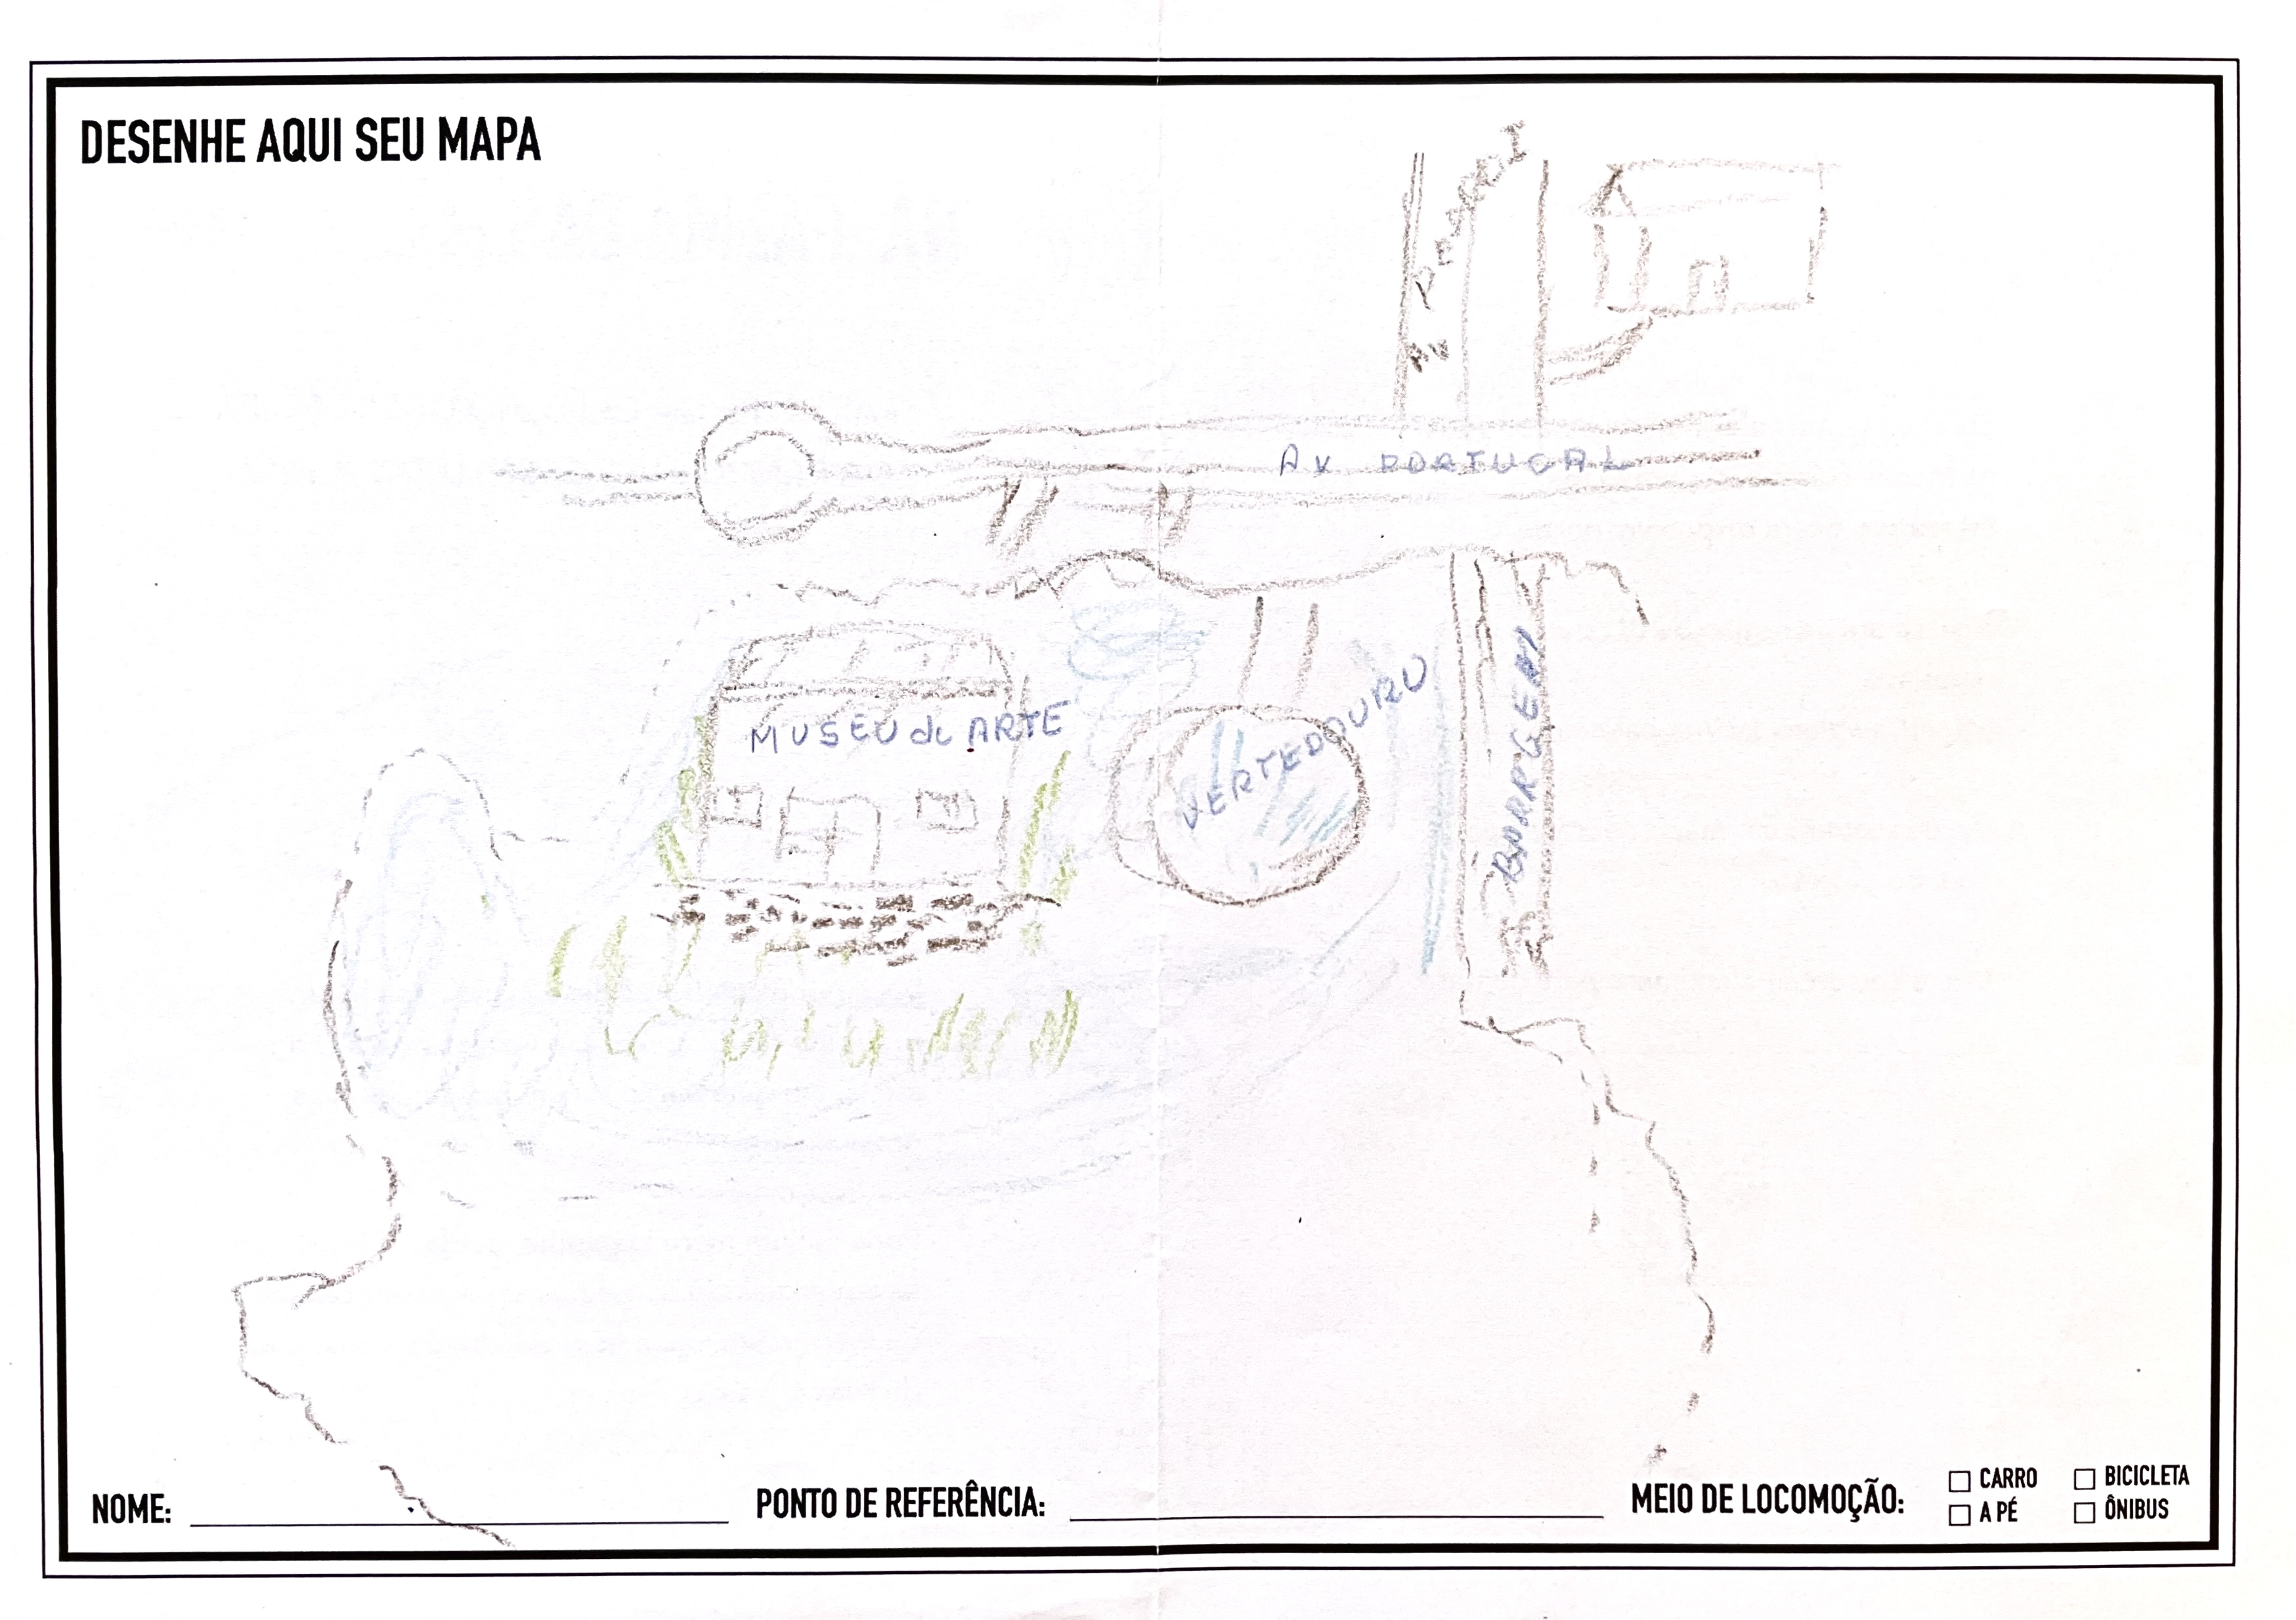 DESENHE AQUI SEU MAPA
AV
AV PORTUGAL
MUSEU de ARTE
VERTEDOURU
BARRGEM
NOME:
PONTO DE REFERÊNCIA:
MEIO DE LOCOMOÇÃO:
CARRO
BICICLETA
A PÉ
ÔNIBUS